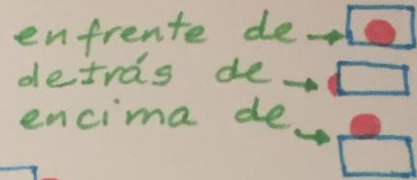 enfrente de
detrás de
encima de